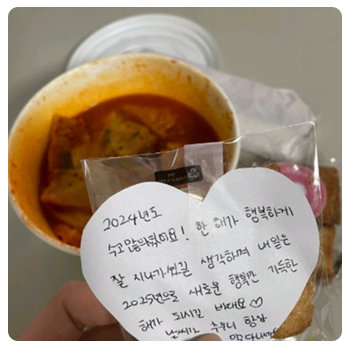 2024년도
수고 많으셨어요! 한 해가 행복하게
잘 지나가셨길 생각하며 내일은
2025년으로 새로운 행복만 가득한
해가 되시길 바래요♡
날씨가 추우니 항상